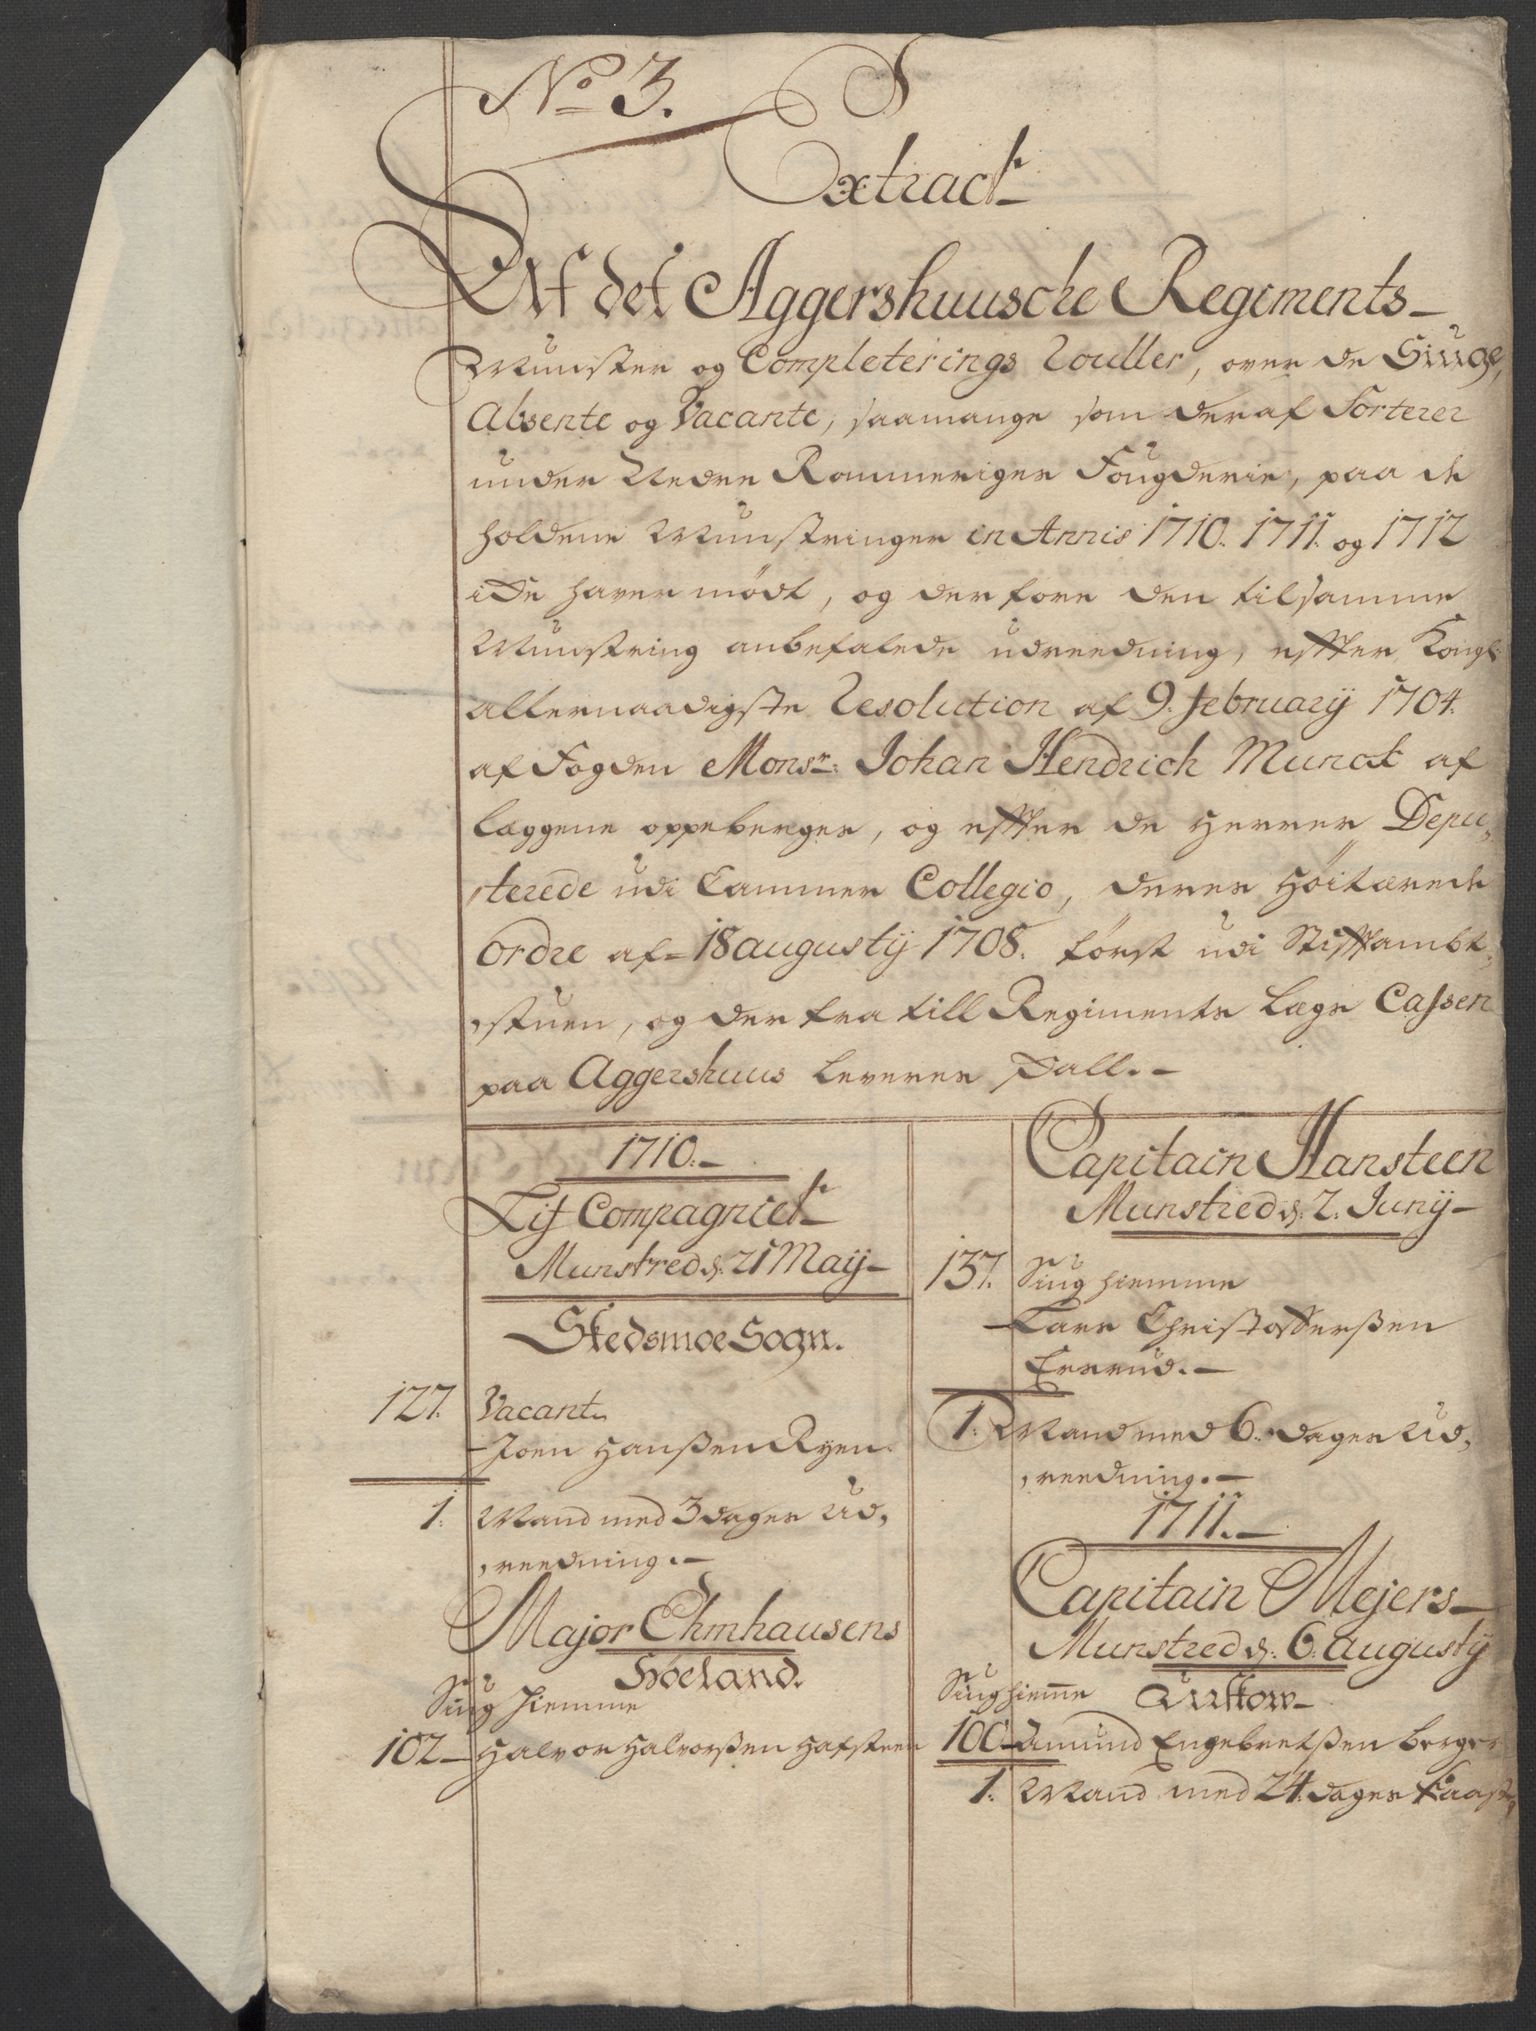 No 3.
Extract
Af det Aggershuusche Regiments
Munster og Completerings Rouller, over de Siuge,
Absente og Vacante, saamange som deraf Sorterer
under Nedre Rommeriges Fougderie, paa de
holdene Munstringer in Annis 1710. 1711. og 1712
iche haver mødt, og derfore den tilsamme
Munstring anbefalede udreedning, effter Kongl:
allernaadigste Resolution af 9. February 1704.
af Fogden Monsr: Johan Hendrich Munck af
Læggene oppeberges, og effter de Herrer Depu,
,terede udi Cammer Collegio, deres Høitærede
Ordre af 18 augusty 1708. først udi Stifftambt,
,stuen, og der fra till Regiments Lægs Cassen
paa Aggershuus leveres Skall.
1710.
Lif Compagniet
Munstred d. 21 Maÿ
Skedsmoe Sogn.
127. Vacant
Joen Hanßen Ryen.
1. Mand med 3 dages Ud,
,reedning.
Major Ehmhausens
Høeland.
Siug hiemme
102 Halvor Halvorßen Hafsteen
Capitain Hansteen
Munstred d: 2. Junÿ
137. Siug hiemme
Lars Christofferßen
Ererud.
1. Mand med 6. dages Ud,
,reedning.
1711.
Capitain Mejers
Munstred d: 6. augustÿ
Siug hiemme Aurskow
100 Amund Engebretßen Berger
1. Mand med 24. dages Kaast,